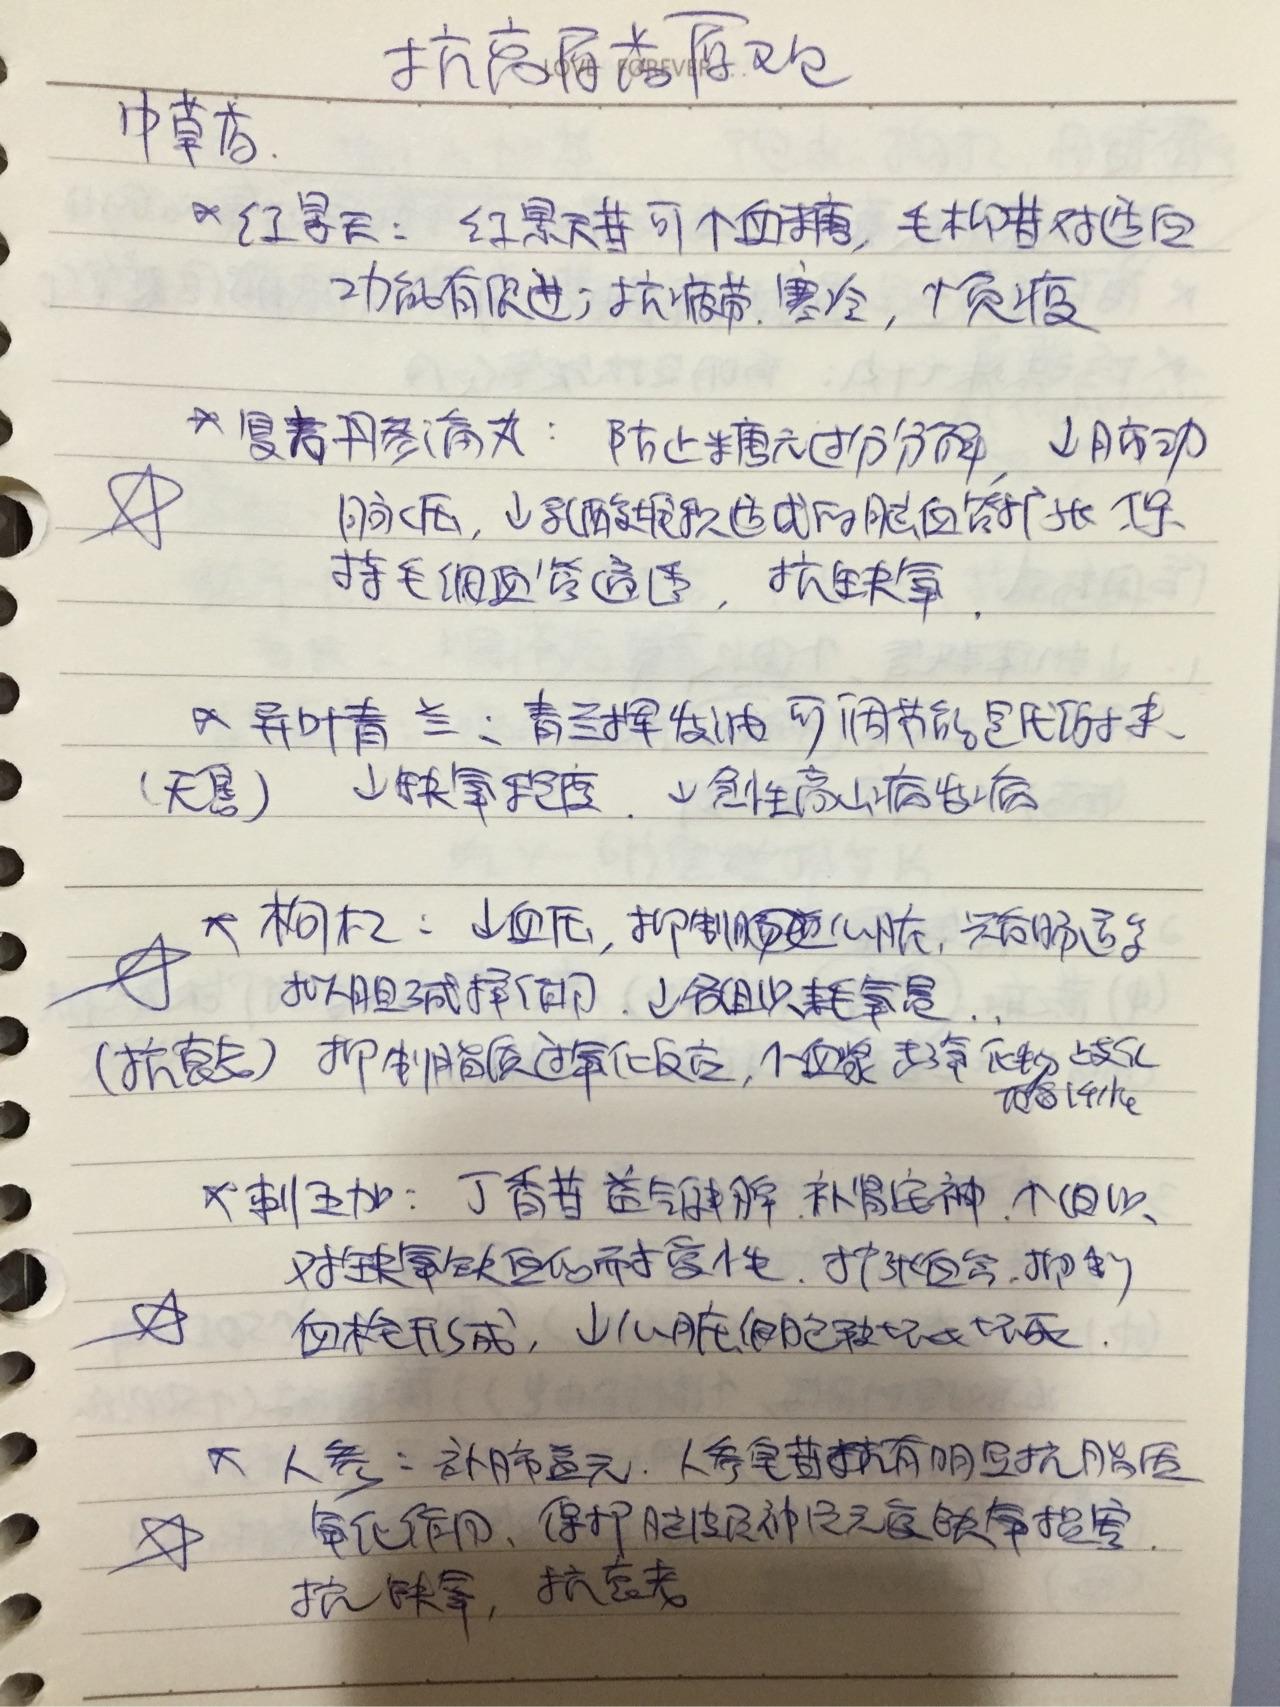 抗高原
LOVE FOREVER...
中草药.
* 红景天: 红景天苷可个血糖, 毛柳苷对适应
功能有促进; 抗疲劳.寒冷, ↑免疫
* 复方丹参滴丸: 防止糖元过分分解, ↓肺动
脉压, ↓乳酸堆积造成的脑血管扩张 保
持毛细血管通透, 抗缺氧.
* 异叶青兰: 青兰挥发油可调节能
↓缺氧程度. ↓急性高山病发病
* 枸杞: ↓血压, 抑制心脏, 兴奋肠道等
拟胆碱样作用. ↓组织耗氧量..
(抗衰老) 抑制脂质过氧化反应, ↑血浆超氧化物歧化
酶
* 刺五加: 丁香苷 益气健脾.补肾安神.↑组织、
对缺氧缺血的耐受性. 扩张血管.抑制
血栓形成, ↓心脏细胞破坏或坏死.
* 人参: 补肺益元. 人参皂苷有明显抗脂质
氧化作用、保护脑皮层神经元 缺氧损害.
抗缺氧, 抗衰老